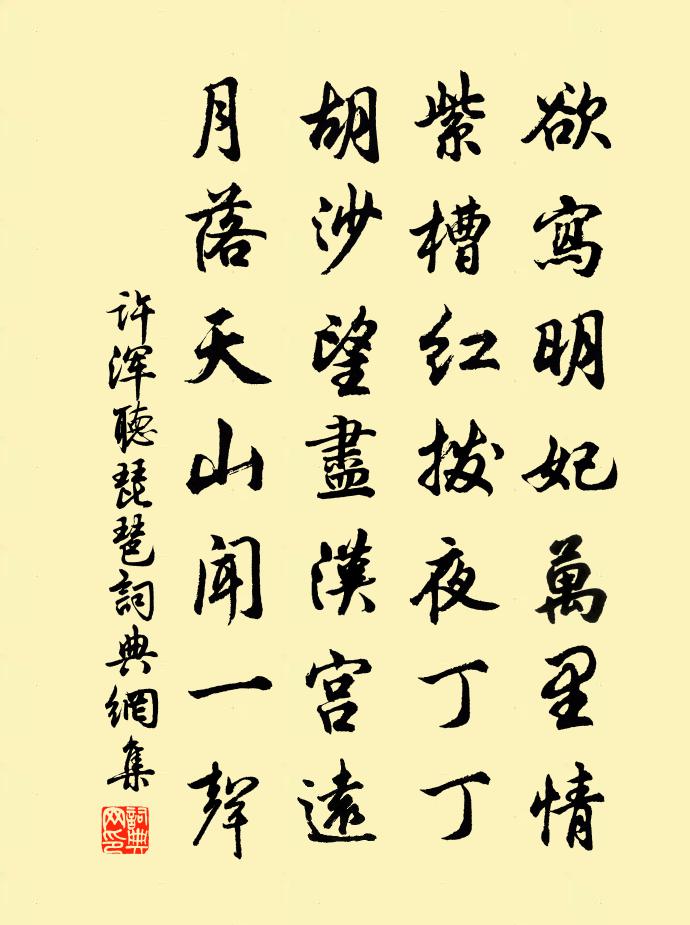 欲寫明妃萬里情
紫槽红撥夜丁丁
胡沙望盡漢宫遠
月落天山聞一聲
许渾聽琵琶詞典網集
詞典网印